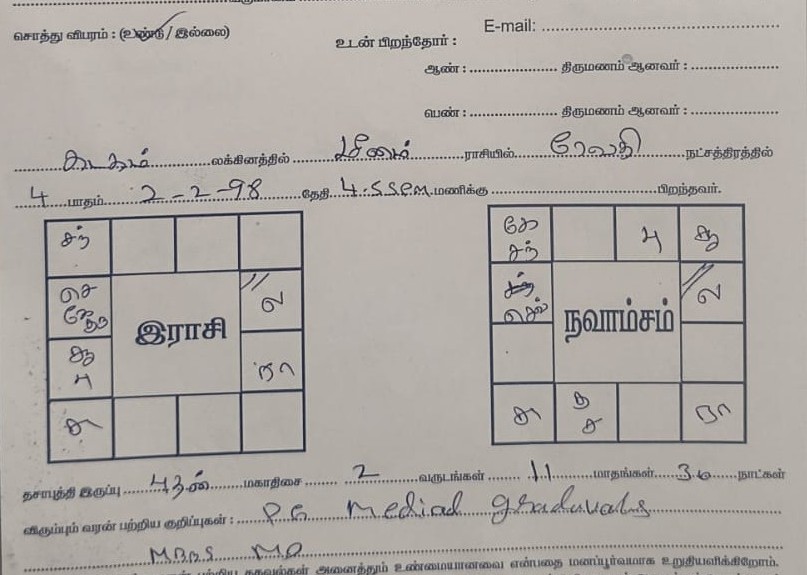 சொத்து விபரம் : (உண்டு / இல்லை)
E-mail:
உடன் பிறந்தோர் :
ஆண் : திருமணம் ஆனவர் :
பெண் : திருமணம் ஆனவர் :
கடகம் லக்கினத்தில் மீனம் ராசியில் ரேவதி நட்சத்திரத்தில்
4 பாதம் 2-2-98 தேதி 4.55 P.M. மணிக்கு பிறந்தவர்.
சந்
செ
ல
இராசி
சூ
பு
ரா
கே
சந்
பு
சூ
செவ்
ல
நவாம்சம்
ரா
தசாபுத்தி இருப்பு புதன் மகாதிசை 2 வருடங்கள் 11 மாதங்கள் 30 நாட்கள்
விரும்பும் வரன் பற்றிய குறிப்புகள் : P.G Medial graduvats
MBBS MD
தகவல்கள் அனைத்தும் உண்மையானவை என்பதை மனப்பூர்வமாக உறுதியளிக்கிறோம்.